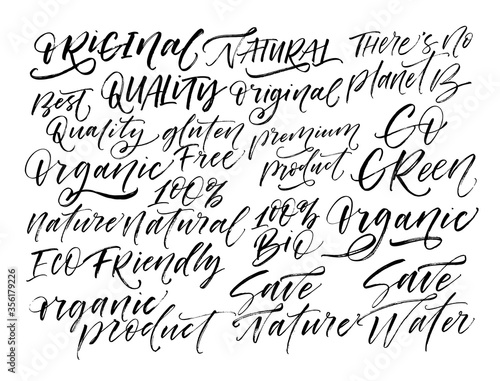 ORIGINAL NATURAL There's no
Best QUALITY Original planet B
Quality gluten premium GO
Organic Free product GREEN
100%
nature natural 100% Organic
ECO FRIENDLY BIO
organic Save Save
product Nature Water
Adobe Stock | #356179226